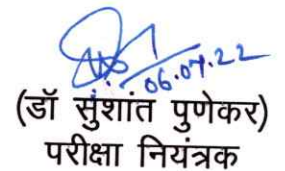 06.07.22
(डॉ सुशांत पुणेकर)
परीक्षा नियंत्रक